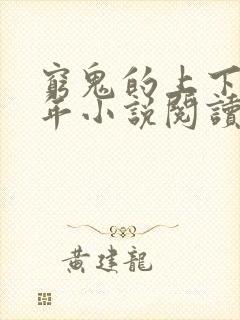 窮鬼的上下
年小說閱讀
黃建龍